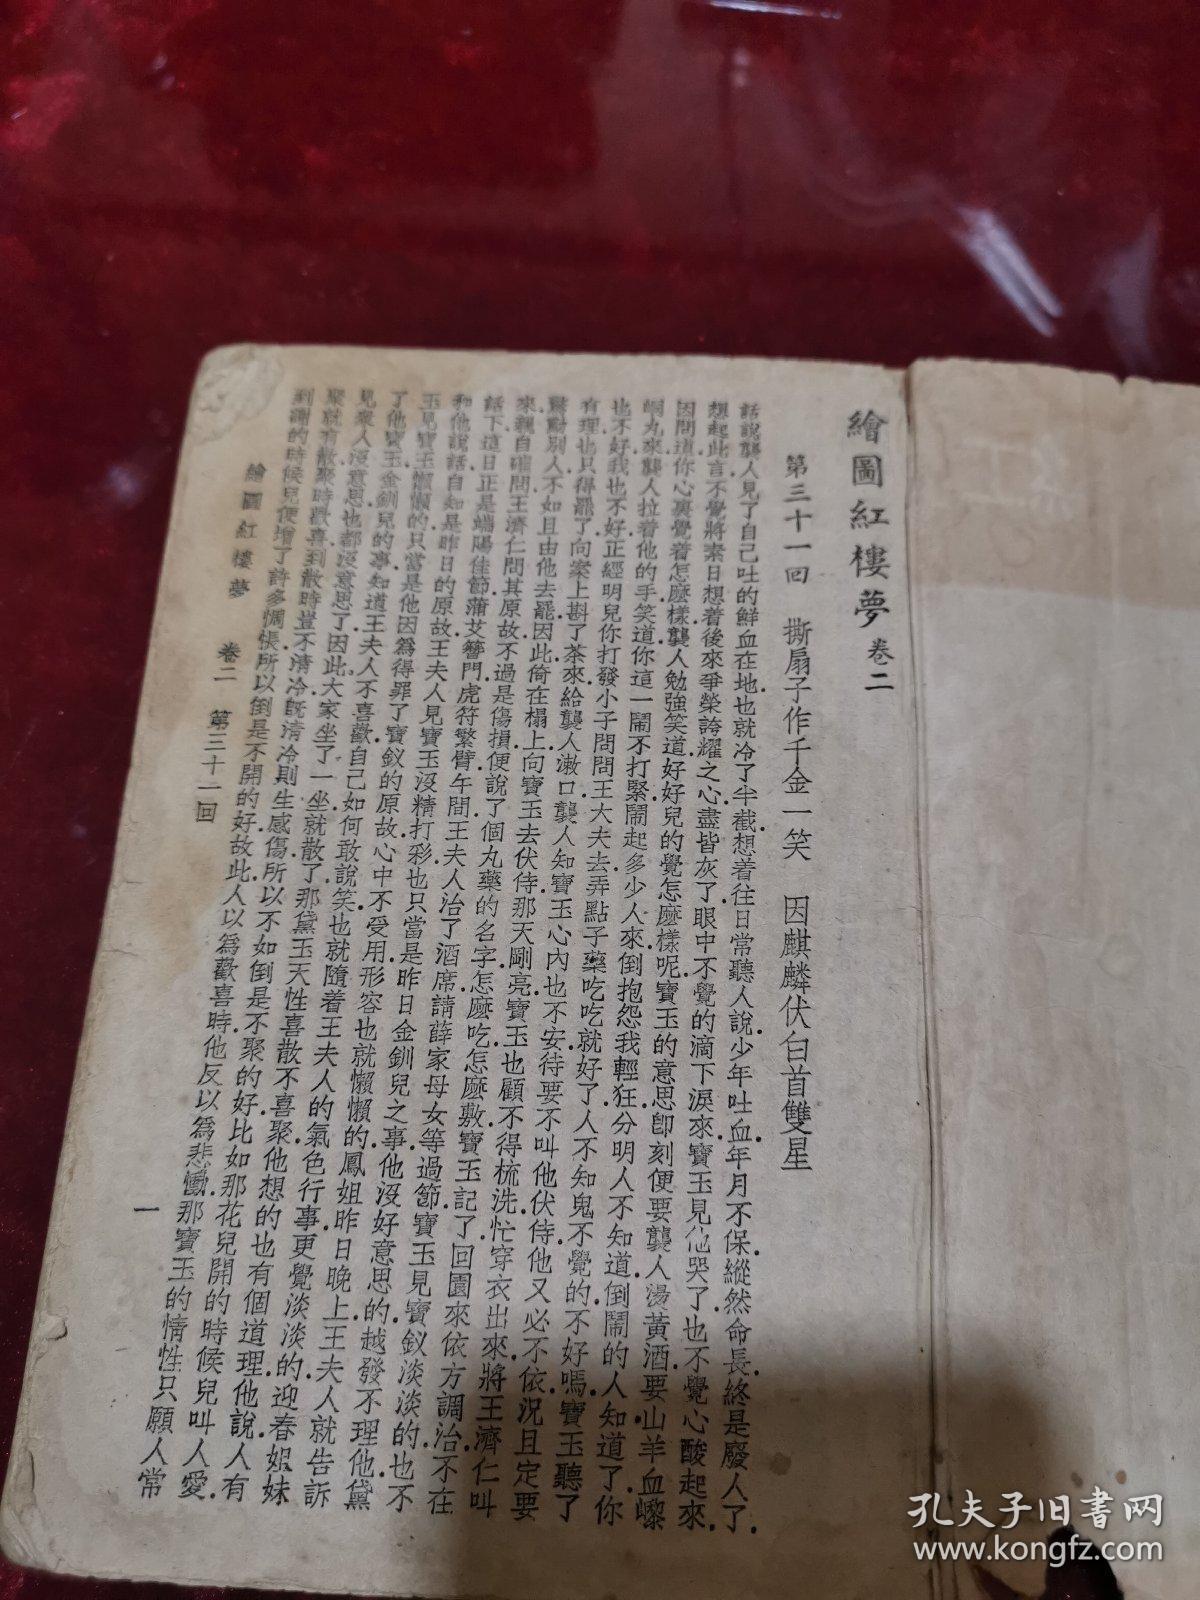 繪圖紅樓夢 卷二
第三十一回 撕扇子作千金一笑 因麒麟伏白首雙星
話說襲人見了自己吐的鮮血在地也就冷了半截想着往日常聽人說少年吐血年月不保縱然命長終是廢人了
想起此言不覺將素日想着後來爭榮誇耀之心盡皆灰了眼中不覺的滴下淚來寶玉見他哭了也不覺心酸起來
因問道你心裏覺着怎麼樣襲人勉強笑道好好兒的覺怎麼樣呢寶玉的意思卽刻便要襲人燙黃酒要山羊血嚟
峒丸來襲人拉着他的手笑道你這一鬧不打緊鬧起多少人來倒抱怨我輕狂分明人不知道倒鬧的人知道了你
也不好我也不好正經明兒你打發小子問問王大夫去弄點子藥吃吃就好了人不知鬼不覺的不好嗎寶玉聽了
有理也只得罷了向案上斟了茶來給襲人漱口襲人知寶玉心內也不安待要不叫他伏侍他又必不依況且定要
驚動別人不如且由他去罷因此倚在榻上向寶玉去伏侍那天剛亮寶玉也顧不得梳洗忙穿衣出來將王濟仁叫
來親自確問王濟仁問其原故不過是傷損便說了個丸藥的名字怎麼吃怎麼敷寶玉記了回園來依方調治不在
話下這日正是端陽佳節蒲艾簪門虎符繫臂午間王夫人治了酒席請薛家母女等過節寶玉見寶釵淡淡的也不
和他說話自知是昨日的原故王夫人見寶玉沒精打彩也只當是昨日金釧兒之事他沒好意思的越發不理他黛
玉見寶玉懶懶的只當是他因爲得罪了寶釵的原故心中不受用形容也就懶懶的鳳姐昨日晚上王夫人就告訴
了他寶玉金釧兒的事知道王夫人不喜歡自己如何敢說笑也就隨着王夫人的氣色行事更覺淡淡的迎春姐妹
見衆人沒意思也都沒意思了因此大家坐了一坐就散了那黛玉天性喜散不喜聚他想的也有個道理他說人有
聚就有散聚時歡喜到散時豈不清冷旣清冷則生感傷所以不如倒是不聚的好比如那花兒開的時候兒叫人愛
到謝的時候兒便增了許多惆悵所以倒是不開的好故此人以爲歡喜時他反以爲悲慟那寶玉的情性只願人常
繪圖紅樓夢 卷二 第三十一回 一
孔夫子旧书网
www.kongfz.com